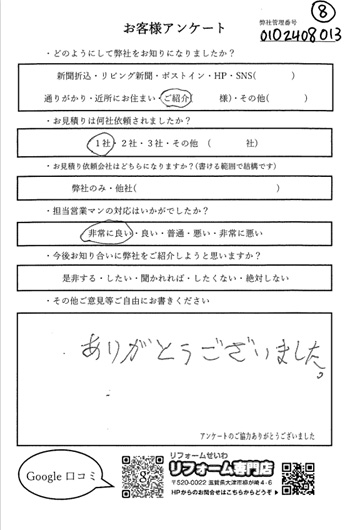 ⑧
お客様アンケート
弊社管理番号
0102408013
・どのようにして弊社をお知りになりましたか？
新聞折込・リビング新聞・ポストイン・HP・SNS(　　　)
通りがかり・近所にお住まい・ご紹介(　　　様)・その他(　　　)
・お見積りは何社依頼されましたか？
1社・2社・3社・その他　(　　　社)
・お見積り依頼会社はどちらになりますか？(書ける範囲で結構です)
弊社のみ・他社(　　　)
・担当営業マンの対応はいかがでしたか？
非常に良い・良い・普通・悪い・非常に悪い
・今後お知り合いに弊社をご紹介しようと思いますか？
是非する・したい・聞かれれば・したくない・絶対しない
・その他ご意見等ご自由にお書きください
ありがとうございました。
アンケートのご協力ありがとうございました
Google 口コミ
リフォームせいわ
リフォーム専門店
〒520-0022 滋賀県大津市柳が崎4-6
HPからのお問合せはこちらからどうぞ▶